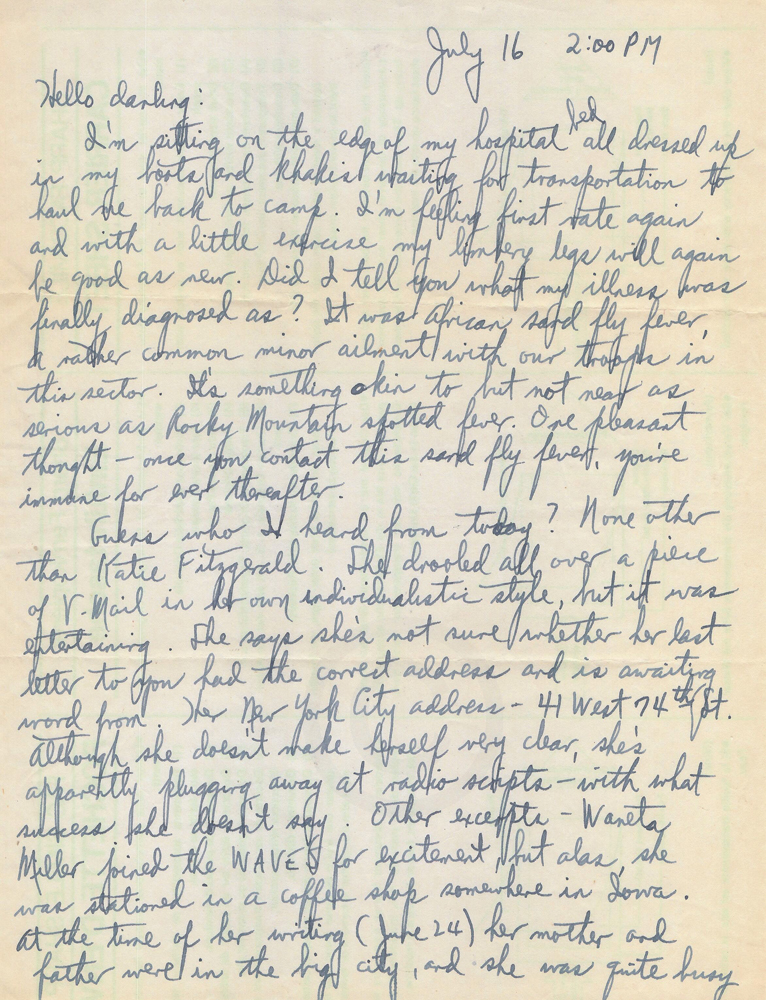 July 16 2:00 PM
Hello darling:
I'm sitting on the edge of my hospital bed all dressed up
in my boots and khakis waiting for transportation to
haul me back to camp. I'm feeling first rate again
and with a little exercise my limbery legs will again
be good as new. Did I tell you what my illness was
finally diagnosed as? It was African sand fly fever,
a rather common minor ailment with our troops in
this sector. It's something akin to but not near as
serious as Rocky Mountain spotted fever. One pleasant
thought - once you contact this sand fly fever, you're
immune for ever thereafter.
Guess who I heard from today? None other
than Katie Fitzgerald. She drooled all over a piece
of V-Mail in her own individualistic style, but it was
entertaining. She says she's not sure whether her last
letter to you had the correct address and is awaiting
word from. Her New York City address - 41 West 74th St.
Although she doesn't make herself very clear, she's
apparently plugging away at radio scripts - with what
success she doesn't say. Other excerpts - Waneta
Miller joined the WAVES for excitement, but alas, she
was stationed in a coffee shop somewhere in Iowa.
At the time of her writing (June 24) her mother and
father were in the big city, and she was quite busy